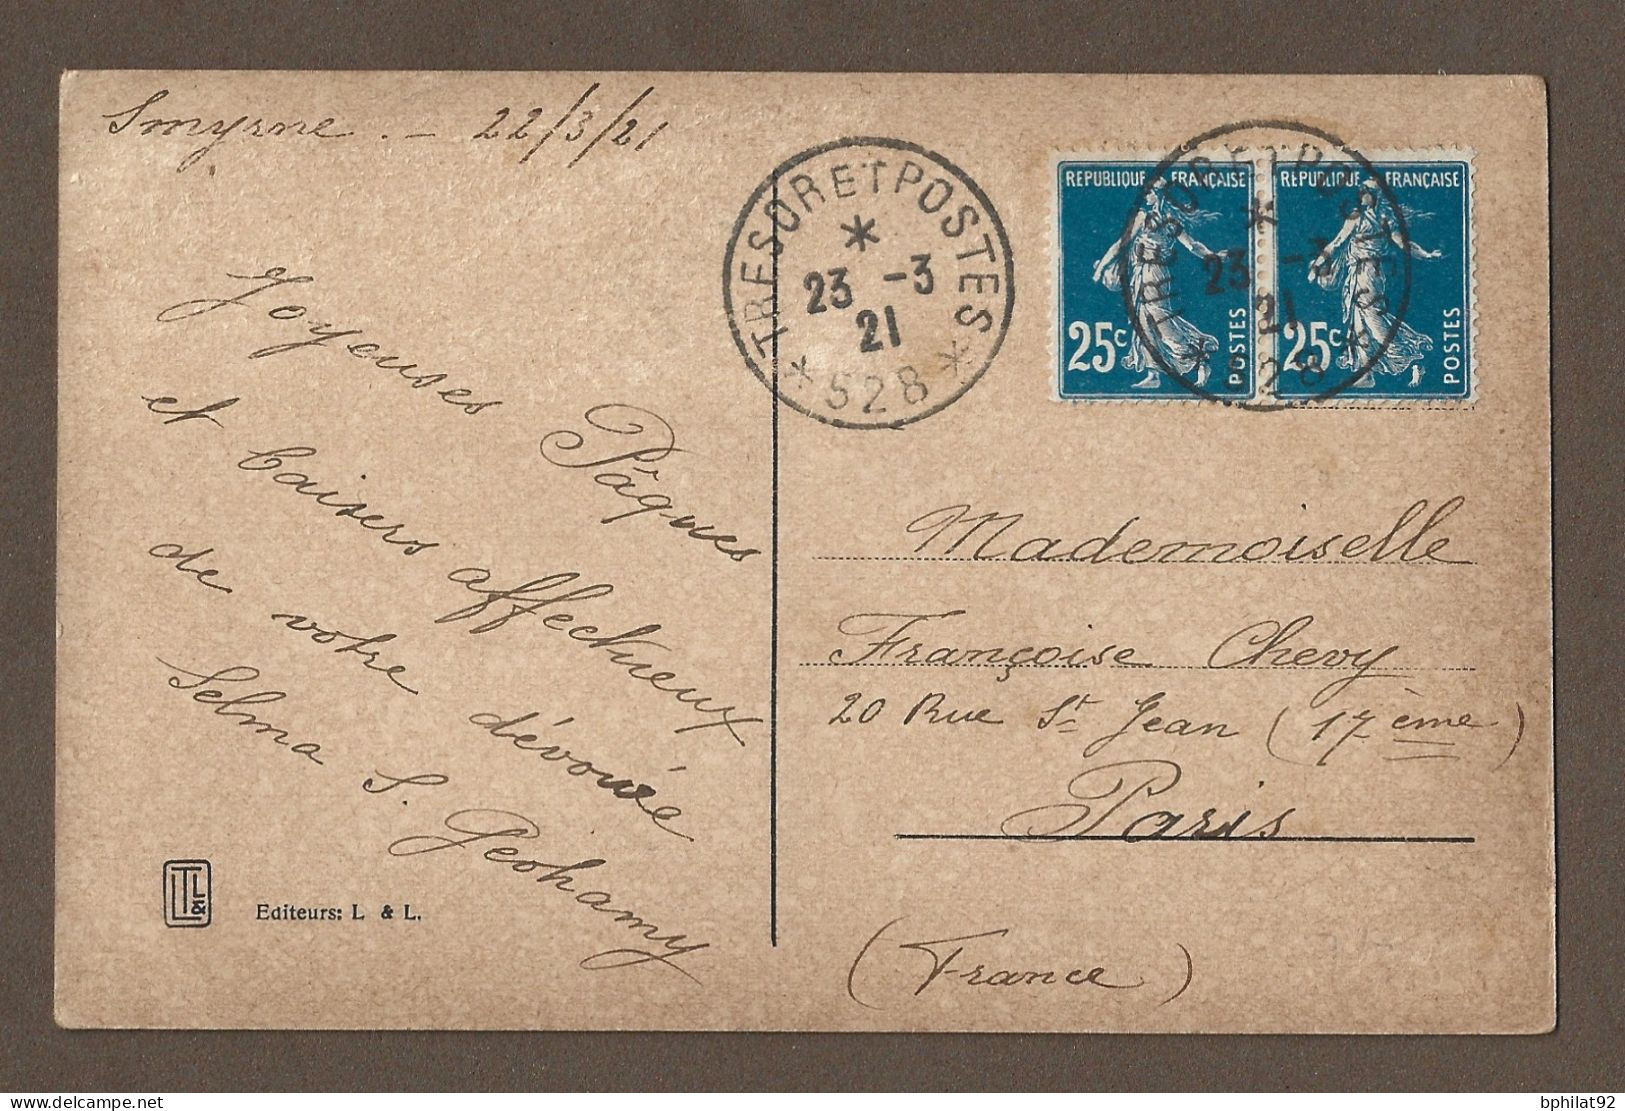 Smyrne. - 22/3/21
TRESOR ET POSTES
*
23 -3
21
* 528 *
REPUBLIQUE FRANÇAISE
25c
POSTES
REPUBLIQUE FRANÇAISE
25c
POSTES
TRESOR ET POSTES
*
23 -3
21
* 528 *
Joyeuses Pâques
et baisers affectueux
de votre dévouée
Selma S. Geohamy
Mademoiselle
Françoise Chevy
20 Rue St Jean (17ème)
Paris
(France)
L&L
Editeurs: L & L.
delcampe.net
bphilat92